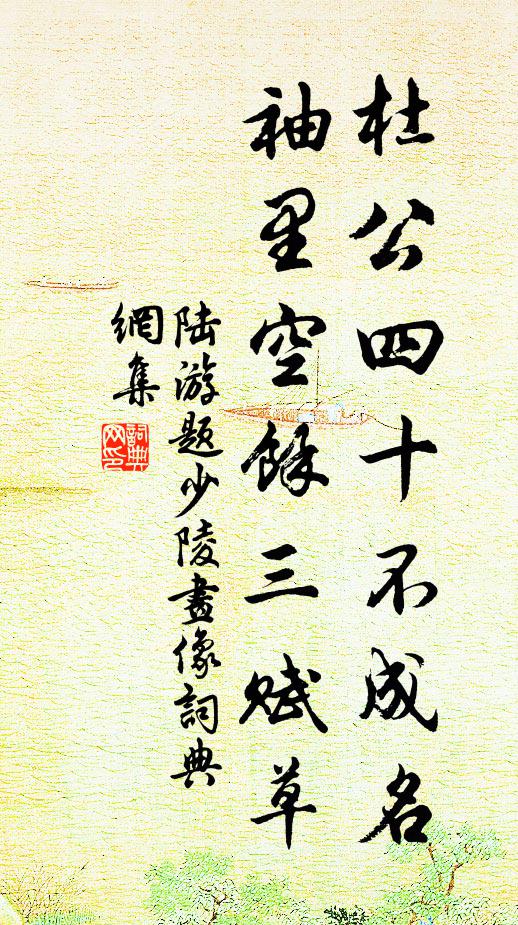 杜公四十不成名
袖里空餘三賦草
陆游题少陵畫像詞典
網集
詞典
网印